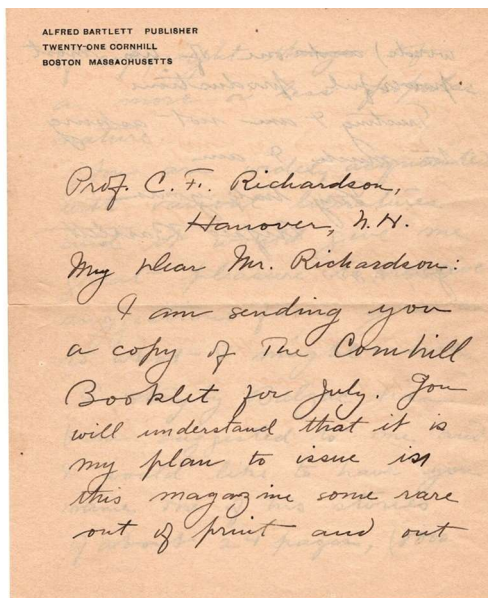 ALFRED BARTLETT PUBLISHER
TWENTY-ONE CORNHILL
BOSTON MASSACHUSETTS
Prof. C. F. Richardson,
Hanover, N. H.
My dear Mr. Richardson:
I am sending you
a copy of The Cornhill
Booklet for July. You
will understand that it is
my plan to issue in
this magazine some rare
out of print and out